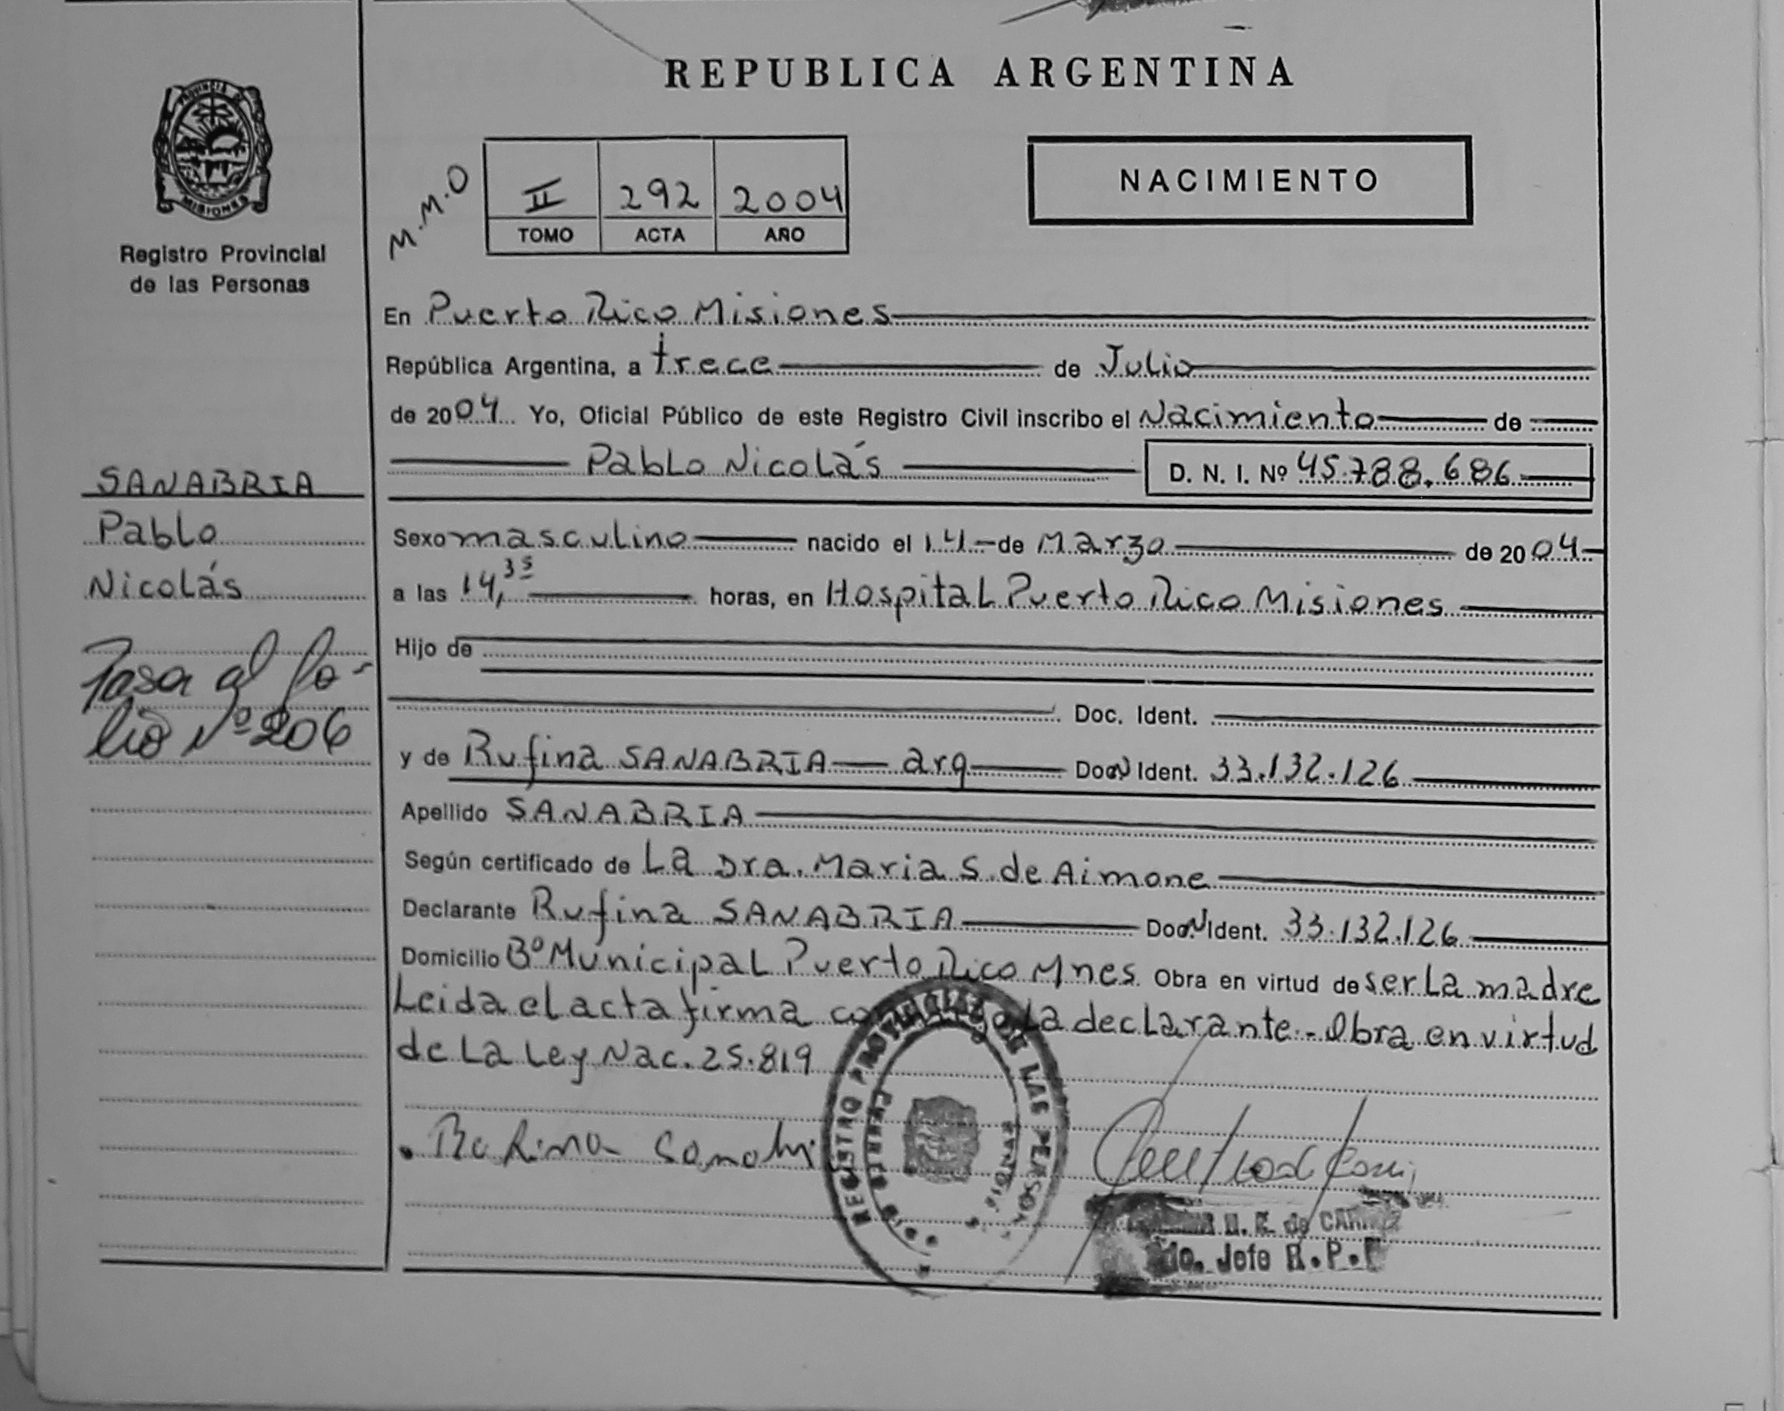 REPUBLICA ARGENTINA
PROVINCIA DE
MISIONES
Registro Provincial
de las Personas
M.M.O
II 292 2004
TOMO ACTA AÑO
NACIMIENTO
En Puerto Rico Misiones
República Argentina, a trece de Julio
de 2004 Yo, Oficial Público de este Registro Civil inscribo el Nacimiento de
Pablo Nicolás D. N. I. Nº 45.788.686
SANABRIA
Pablo
Nicolás
Pasa al fo-
lio Nº 206
Sexo masculino nacido el 14 de Marzo de 2004
a las 14,35 horas, en Hospital Puerto Rico Misiones
Hijo de
Doc. Ident.
y de Rufina SANABRIA arg Doc Ident. 33.132.126
Apellido SANABRIA
Según certificado de La Dra. Maria S. de Aimone
Declarante Rufina SANABRIA Doc Ident. 33.132.126
Domicilio Bº Municipal Puerto Rico Mnes. Obra en virtud de ser La madre
Leida el acta firma La declarante.- Obra en virtud
de La Ley Nac. 25.819
REGISTRO PROVINCIAL DE LAS PERSONAS
de CAR
Jefe R.P.